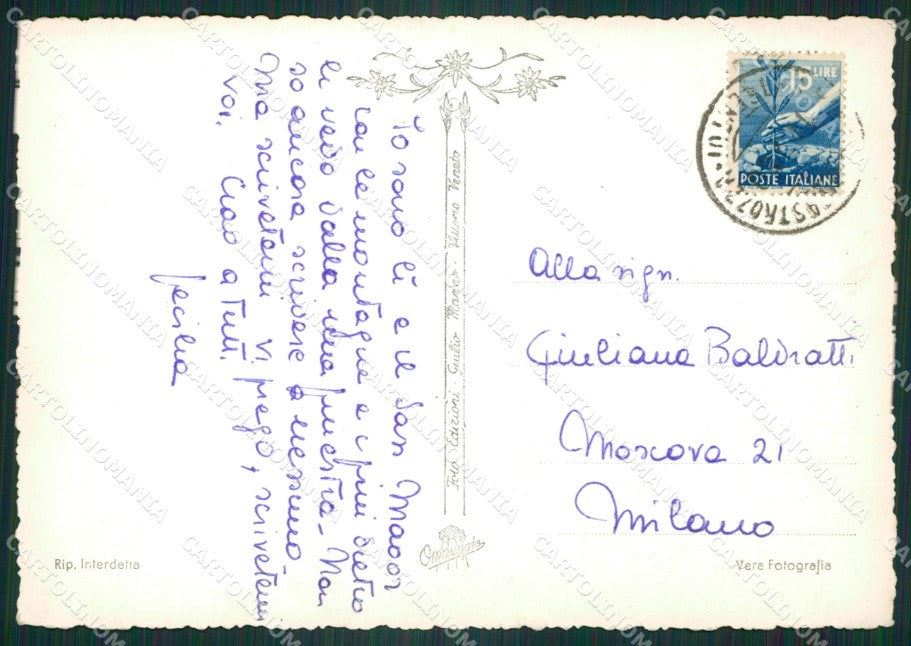 Io sono lì e il San Mauor
con le montagne e i pini dietro
li vedo dalla mia finestra - Non
so ancora scrivere a nessuno -
Ma scrivetemi vi prego, scrivetemi
voi. Ciao a tutti.
Cecilia
Foto Edizioni - Giulio Marino - Vittorio Veneto
15 LIRE
POSTE ITALIANE
Alla sign.
Giuliana Baldratti
Moscova 21
Milano
Rip. Interdetta
Vera Fotografia
CARTOLINOMANIA